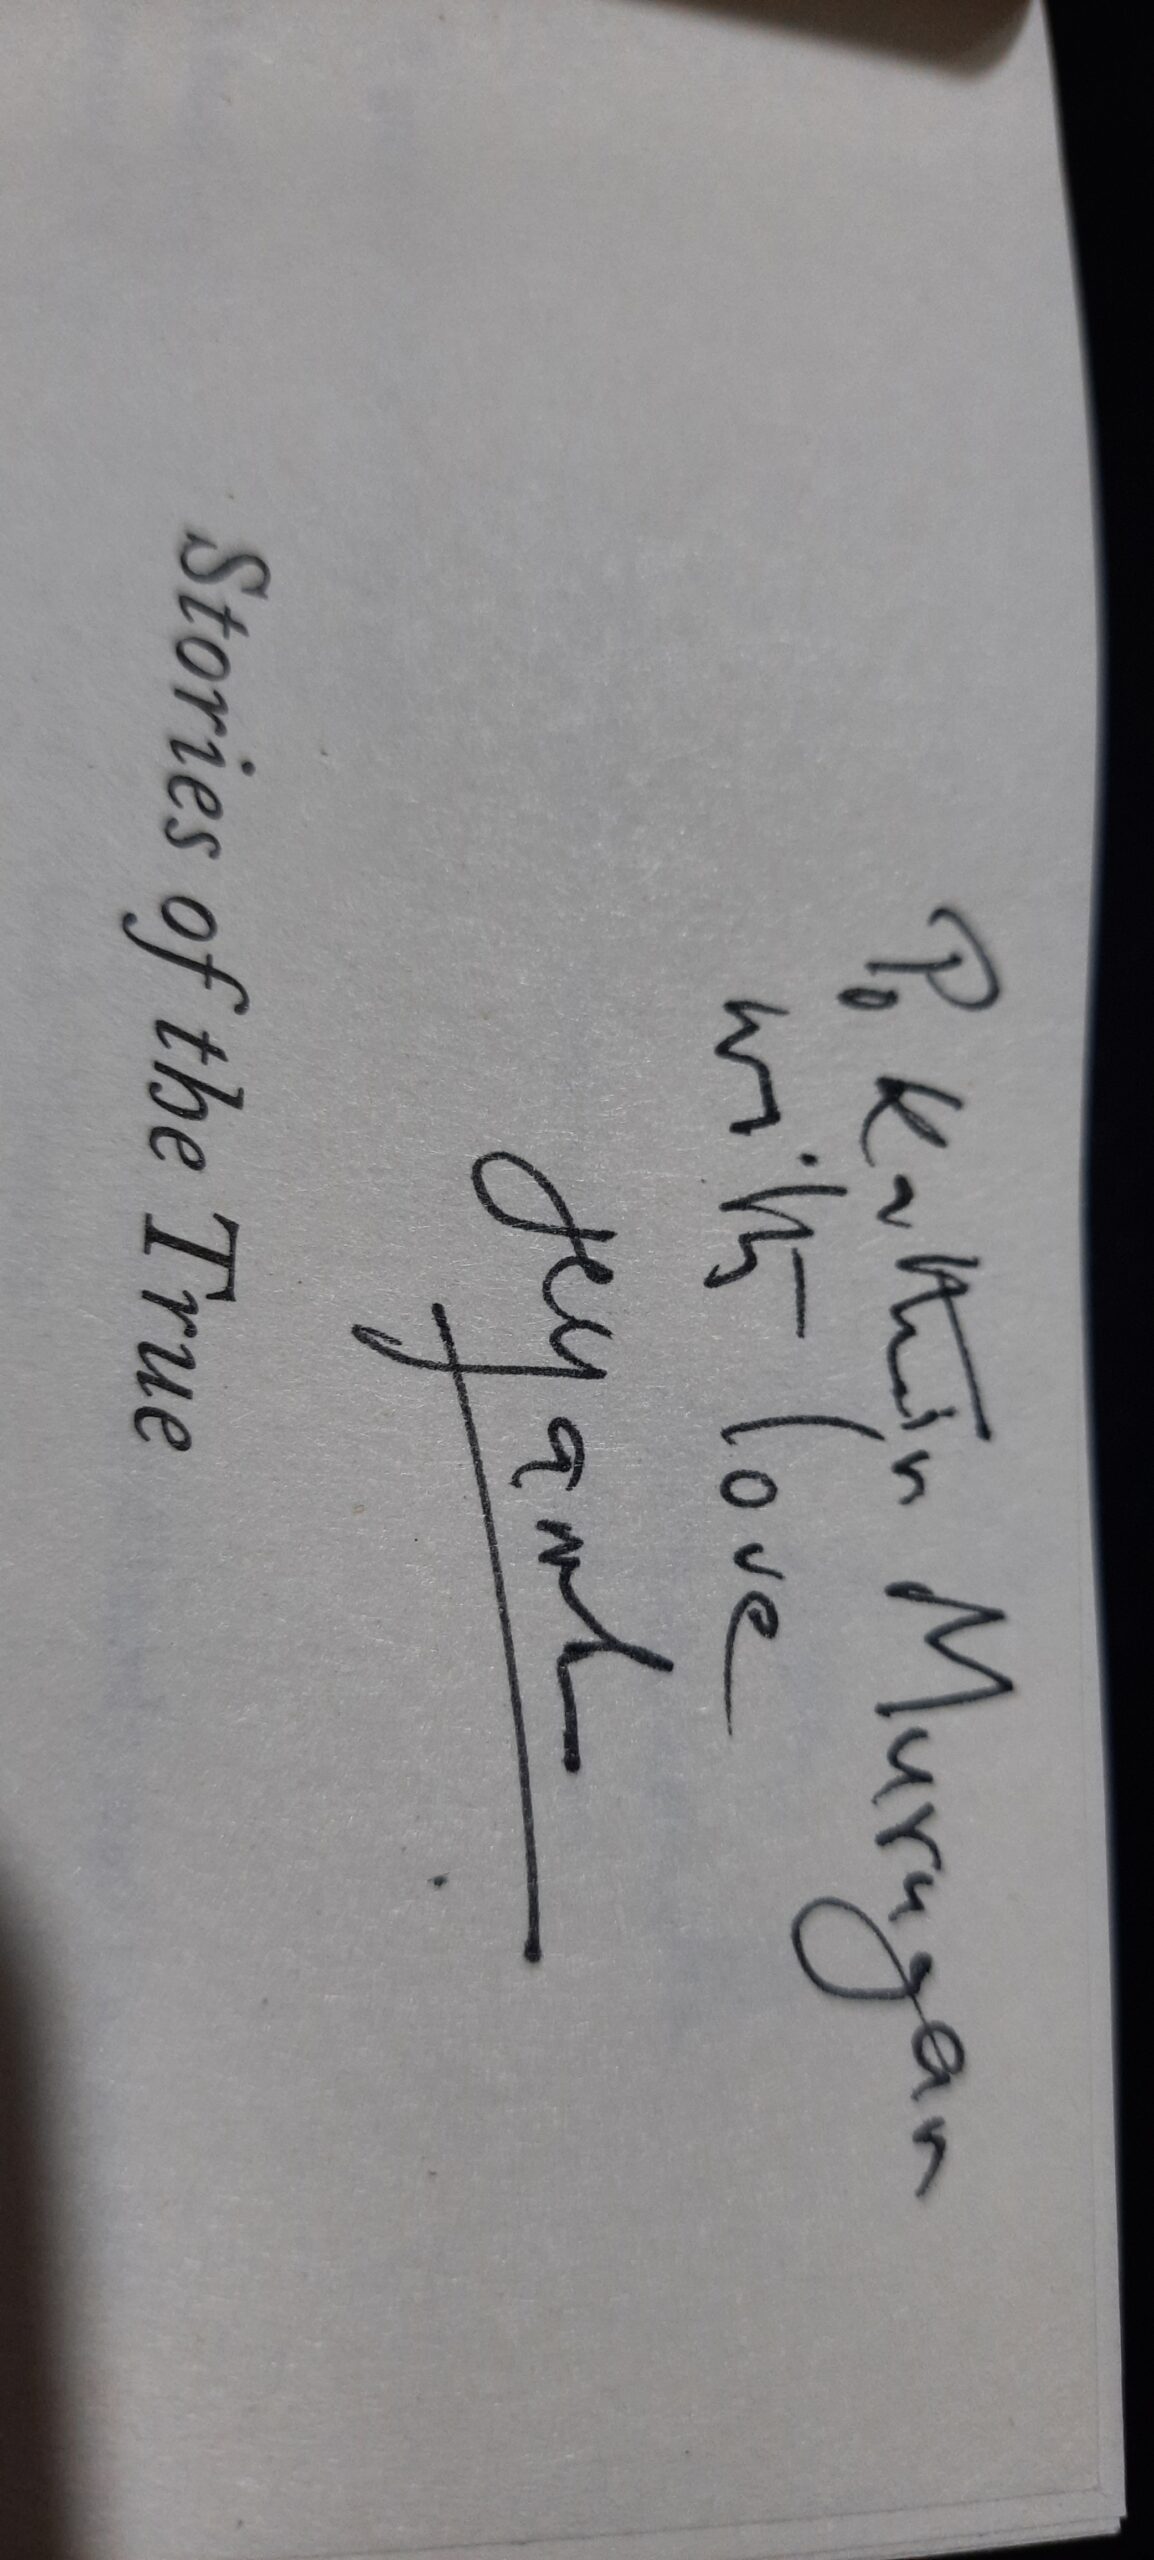 P. Kathir Murugan
with love
Jeyamoh
Stories of the True